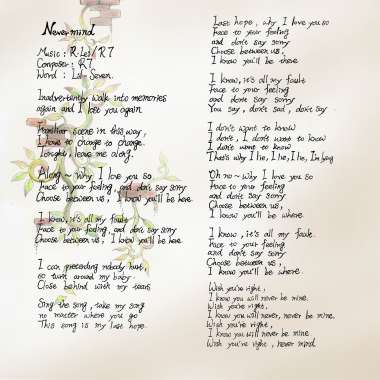 Never mind
Music : R-Lei / R7
Composer : R7
Word : Lil-Seven.
Inadvertently walk into memories
again and I lost you again
Familiar scene in this way,
I have to change to change.
Tonight leave me alone.
Along~ Why I love you so
Face to your feeling, and don't say sorry
Choose between us, I know you'll be here
I know, it's all my fault
Face to your feeling, and don't say sorry
Choose between us, I know you'll be here
I can preceding nobody hurt,
so turn around my baby.
Close behind with my tears
Sing the song, take my song
no matter where you go
This song is my last hope.
Last hope, why I love you so
Face to your feeling
and don't say sorry
Choose between us,
I know you'll be there
I know, it's all my fault
Face to your feeling,
and don't say sorry
You say, don't sad, don't say
I don't want to know
I don't, I don't want to know
I don't want to know
That's why I lie, I lie, I lie, I'm lying
Oh no~ Why I love you so
Face to your feeling
and don't say sorry
Choose between us,
I know you'll be where.
I know, it's all my fault.
Face to your feeling
and don't say sorry
Choose between us,
I know you'll be where
Wish you're right,
I know you will never be mine.
Wish you're right,
I know you will never, never be mine.
Wish you're right,
I know you will never be mine
Wish you're right, never mind